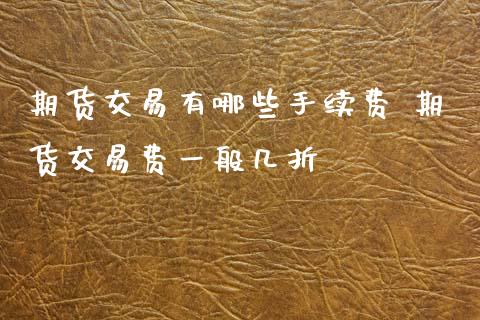 期货交易有哪些手续费 期
货交易费一般几折